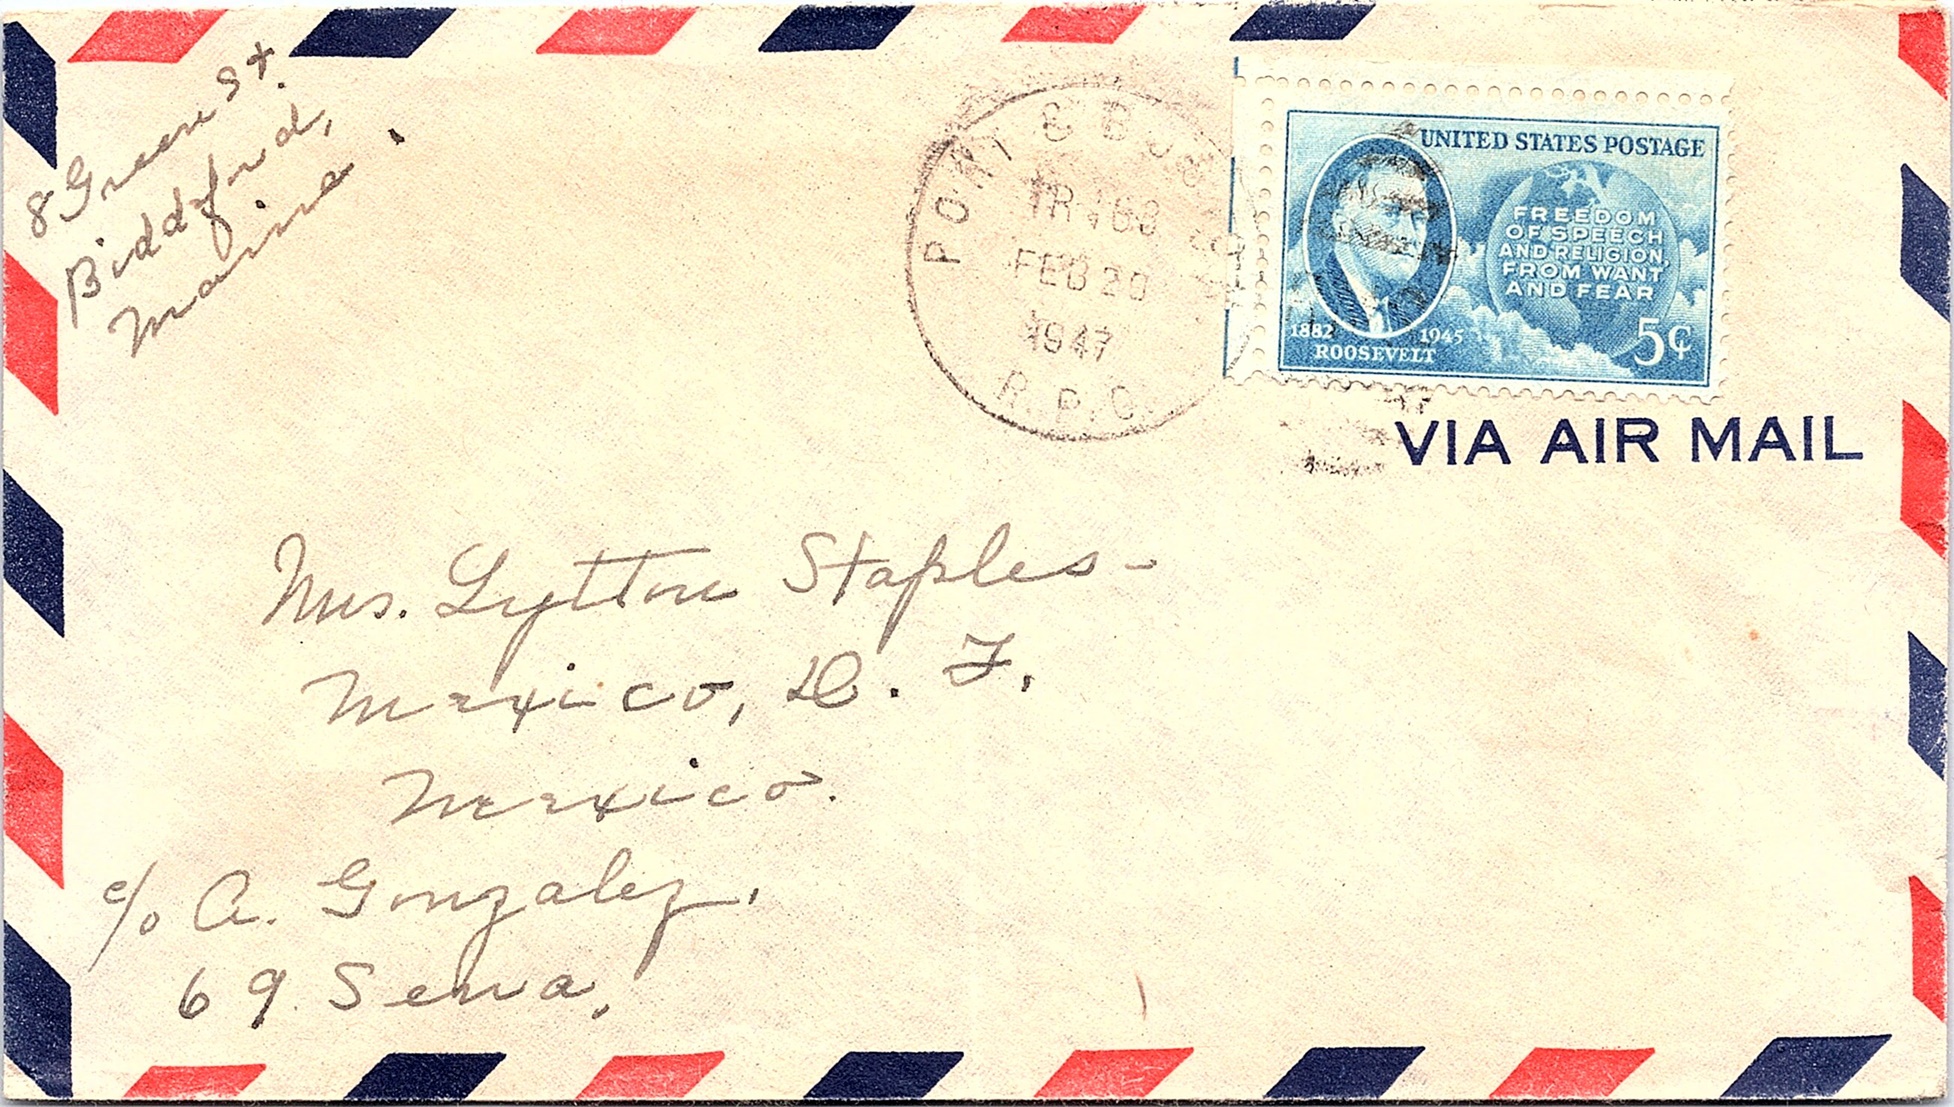 8 Green St.
Biddeford,
Maine.
PORT & BOS
TR 163
FEB 20
1947
R.P.O.
UNITED STATES POSTAGE
FREEDOM
OF SPEECH
AND RELIGION,
FROM WANT
AND FEAR
1882 1945
ROOSEVELT
5¢
VIA AIR MAIL
Mrs. Lytton Staples-
Mexico, D. F.
Mexico.
c/o A. Gonzalez,
69. Sena,